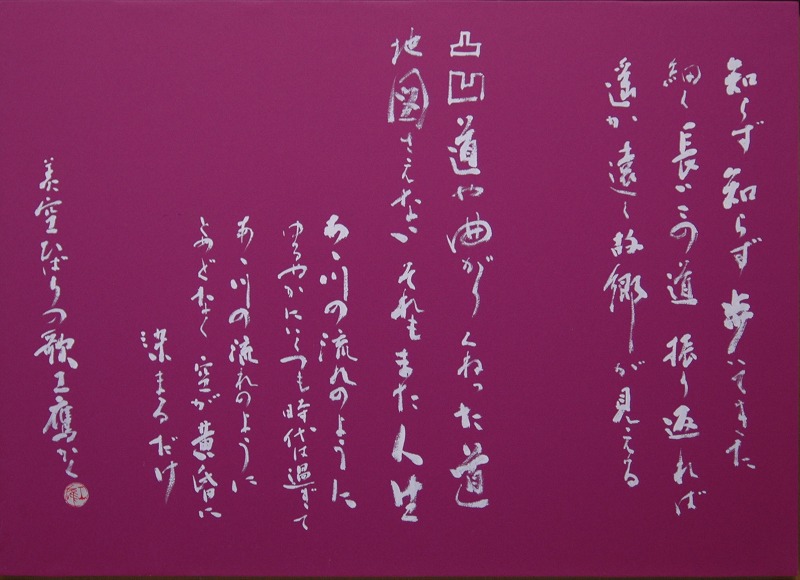 知らず知らず歩いてきた
細く長いこの道 振り返れば
遥か遠く故郷が見える
凸凹道や曲がりくねった道
地図さえない それもまた人生
あゝ川の流れのように
ゆるやかにいくつも時代は過ぎて
あゝ川の流れのように
とめどなく 空が黄昏に
染まるだけ
美空ひばりの歌 工鷹かく